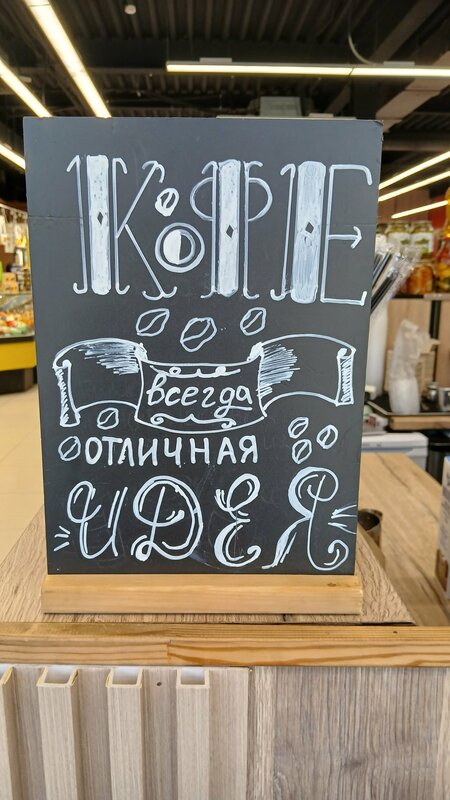 КОФЕ
всегда
ОТЛИЧНАЯ
ИДЕЯ